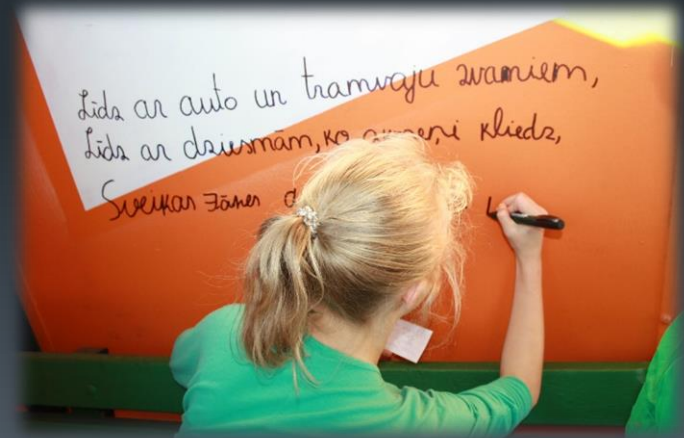 Līdz ar auto un tramvaju zvaniem,
Līdz ar dziesmām, ko kliedz,
Sveikas Jāņes